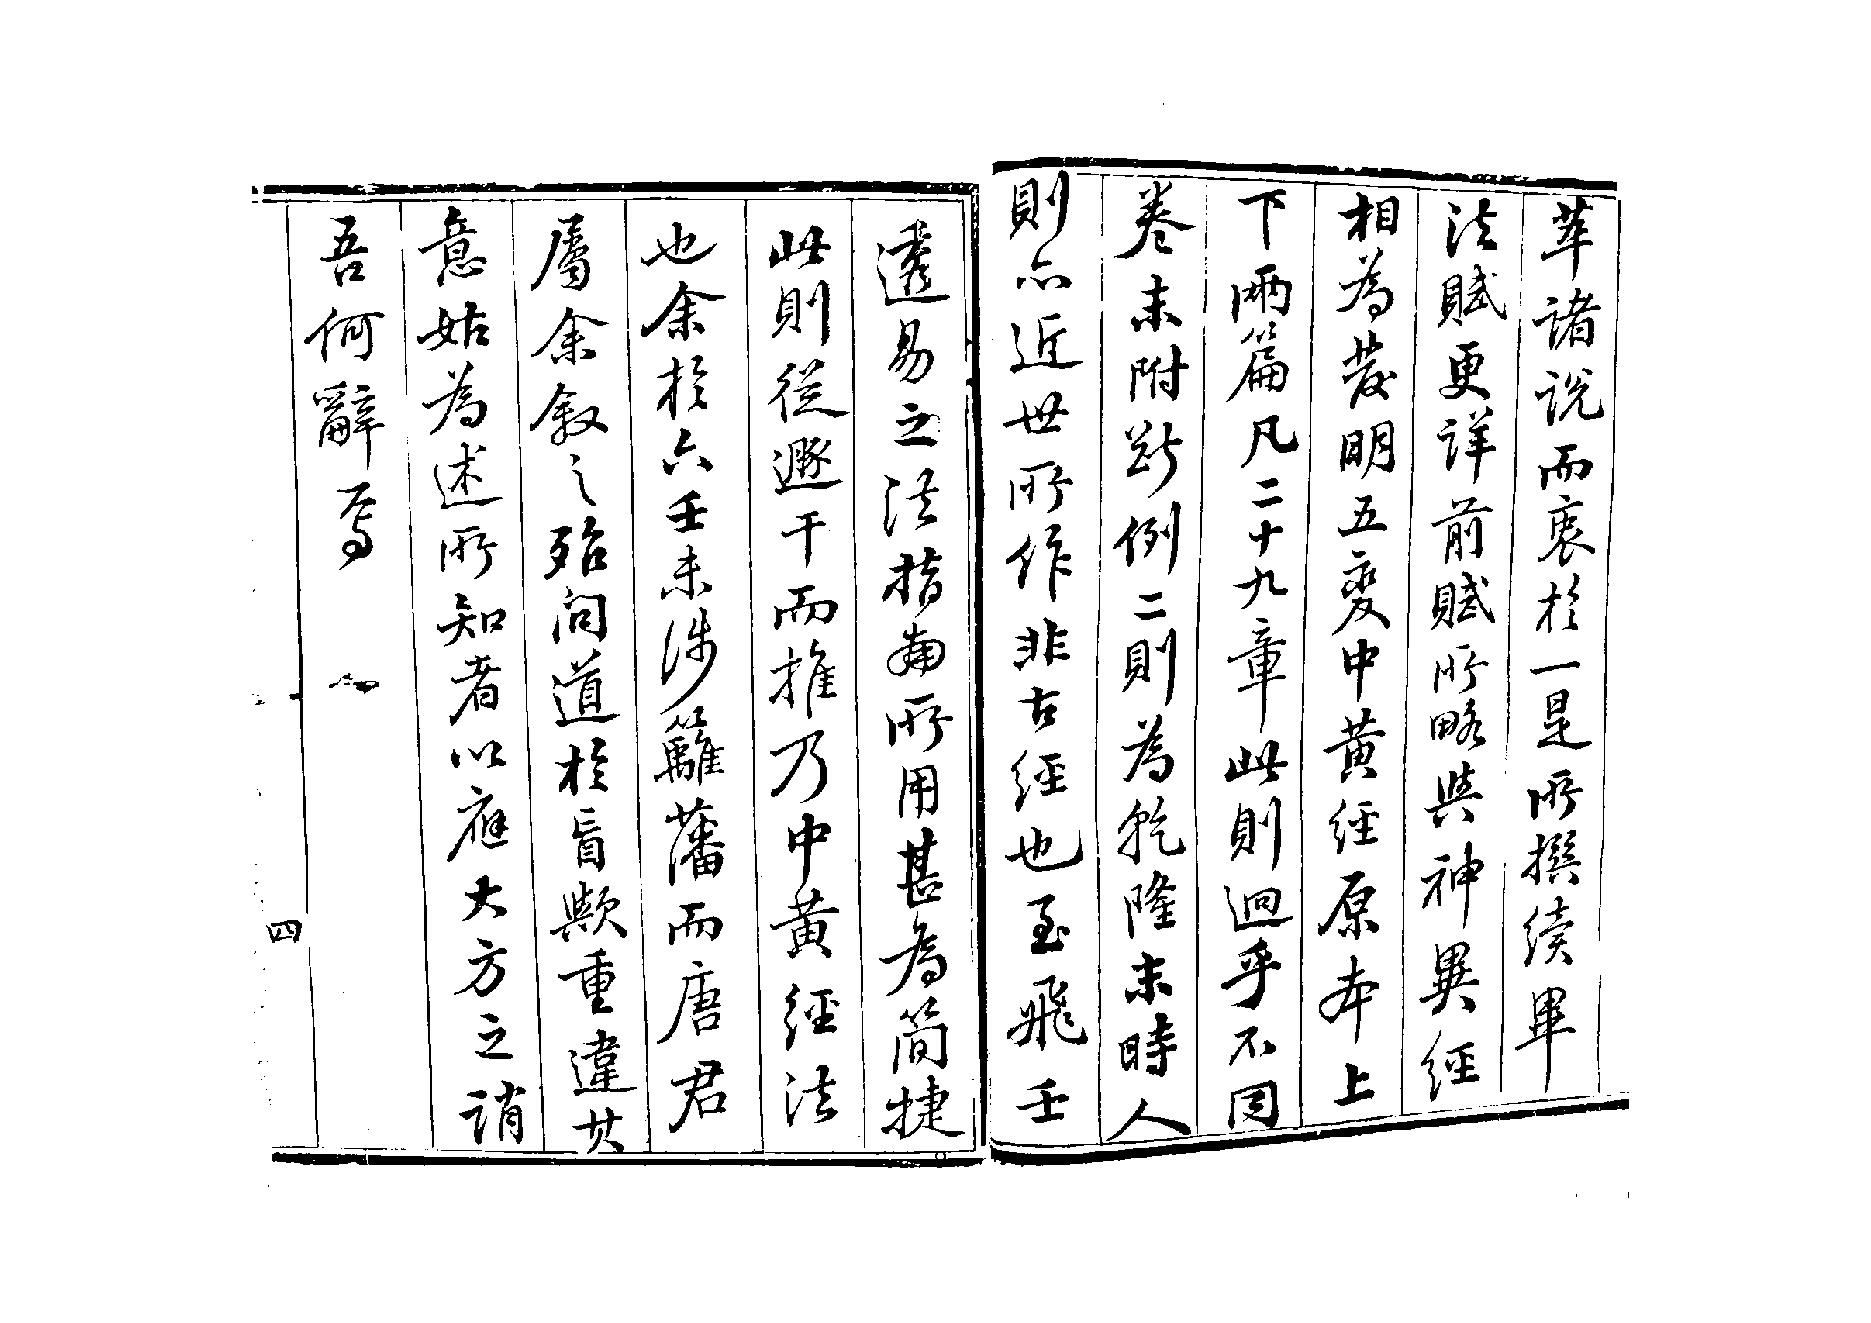 萃諸説而衷於一是所撰續畢
法賦更詳前賦所略與神異經
相為發明五變中黄經原本上
下兩篇凡二十九章此則迥乎不同
卷末附斷例二則為乾隆末時人
則亦近世所作非古經也至飛壬
遁易之法指南所用甚為簡捷
此則從遯干而推乃中黄經法
也余於六壬未涉籬藩而唐君
屬余叙之殆問道於盲歟重違其
意姑為述所知者以應大方之誚
吾何辭焉
四